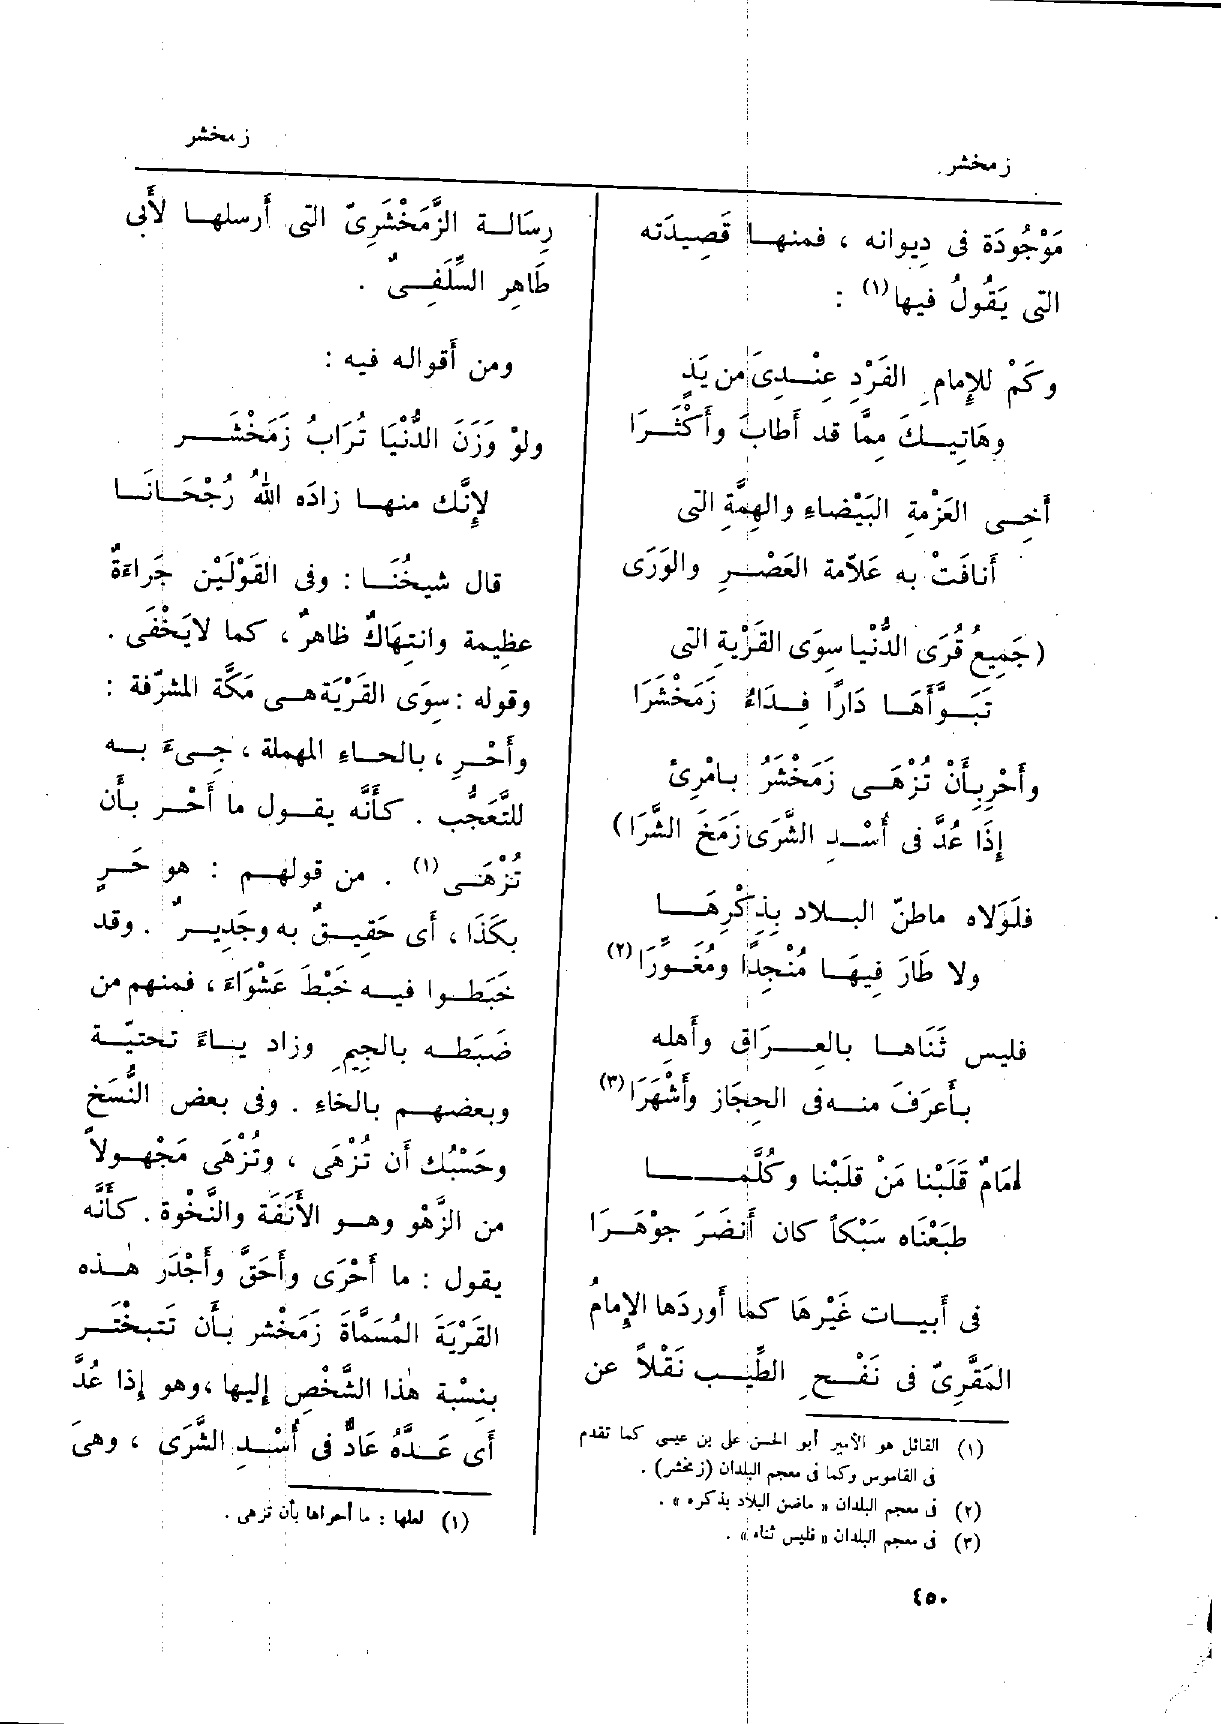 زمخشر
زمخشر
مَوْجُودَة فى دِيوانه ، فمنهـا قَصِيدَته
التى يَقُولُ فيها (١) :
وكَمْ للإِمامِ الفَرْدِ عِنْـدِىَ من يَدٍ
وهَاتِيـكَ مِمَّا قد أَطابَ وأَكْثَـرَا
أَخِـى العَزْمةِ البَيْضاءِ والهِمَّةِ التى
أَنافَتْ به عَلاّمة العَصْـرِ والوَرَى
(جَمِيعُ قُرَى الدُّنْيا سِوَى القَرْيةِ التى
تَبَـوَّأَهَـا دَارًا فِـدَاءُ زَمَخْشَرَا
وأَحْرِ بأَنْ تُزْهَـى زَمَخْشَرُ بـامْرِئٍ
إِذَا عُدَّ فى أُسْـدِ الشَّرَى زَمَخَ الشَّرَا)
فلَوْلَاه ماطنّ البـلاد بِذِكْرِهَـا
ولا طَارَ فِيهَـا مُنْجِدًا ومُغَـوِّرَا (٢)
فليس ثَنَاهـا بالعِـرَاقِ وأَهلِه
بـأَعرَفَ منـه فى الحِجَاز وأَشْهَرَا (٣)
إمَامٌ قَلَبْنا مَنْ قلَبْنا وكُلَّمـا
طبَعْنَاه سَبْكاً كان أَنضَرَ جوْهَـرَا
فى أَبيـات غَيْرِهَا كما أَوردَها الإِمامُ
المَقَّرِىّ فى نَفْـح الطِّيـب نَقْلاً عن
(١) القائل هو الأمير أبو الحسن على بن عيسى كما تقدم
فى القاموس وكما فى معجم البلدان (زمخشر) .
(٢) فى معجم البلدان « ماضن البلاد بذكره » .
(٣) فى معجم البلدان « فليس ثناه » .
رِسَالـة الزَّمَخْشَرِىّ التى أَرسلهـا لأَبى
طَاهِر السِّلَفِـىّ .
ومن أَقواله فيه :
ولوْ وَزَنَ الدُّنْيَا تُرَابُ زَمَخْشَـر
لإِنَّك منهـا زادَه اللهُ رُجْحَـانَـا
قال شيخُنَـا : وفى القَوْلَيْن جَراءَةٌ
عظِيمة وانتِهَاكٌ ظاهرٌ ، كما لايَخْفَى .
وقوله : سِوَى القَرْيَة هـى مَكَّة المشرّفة :
وأَحْرِ ، بالحـاءِ المهملة ، جِـىءَ بـه
للتَّعَجُّب . كأَنَّه يقـول ما أَحْـر بـأَن
تُزْهَـى (١) . من قولهـم : هو حَـرٍ
بكَذَا ، أَى حَقِيـقٌ به وجَدِيـرٌ . وقد
خبَطـوا فيـه خَبْطَ عَشْوَاءَ ، فمنهم من
ضَبَطـه بالجِيمِ وزاد يـاءً تحتيّـة
وبعضهـم بالخاءِ . وفى بعض النُّسَخ
وحَسْبُك أَن تُزْهَى ، وتُزْهَى مَجْهـولاً
من الزَّهْو وهـو الأَنَفَة والنَّخْوة . كأَنَّه
يقول : ما أَحْرَى وأَحَقَّ وأَجْدَر هٰـذه
القَرْيَةَ المُسَمَّاةَ زَمَخْشر بـأَن تَتبخْتَـر
بنِسْبة هٰذا الشَّخْص إِليها ، وهو إِذا عُدَّ
أَى عَـدَّهُ عَادٌّ فى أُسْـدِ الشَّرَى ، وهىَ
(١) لعلها : ما أحراها بأن تزهى .
٤٥٠